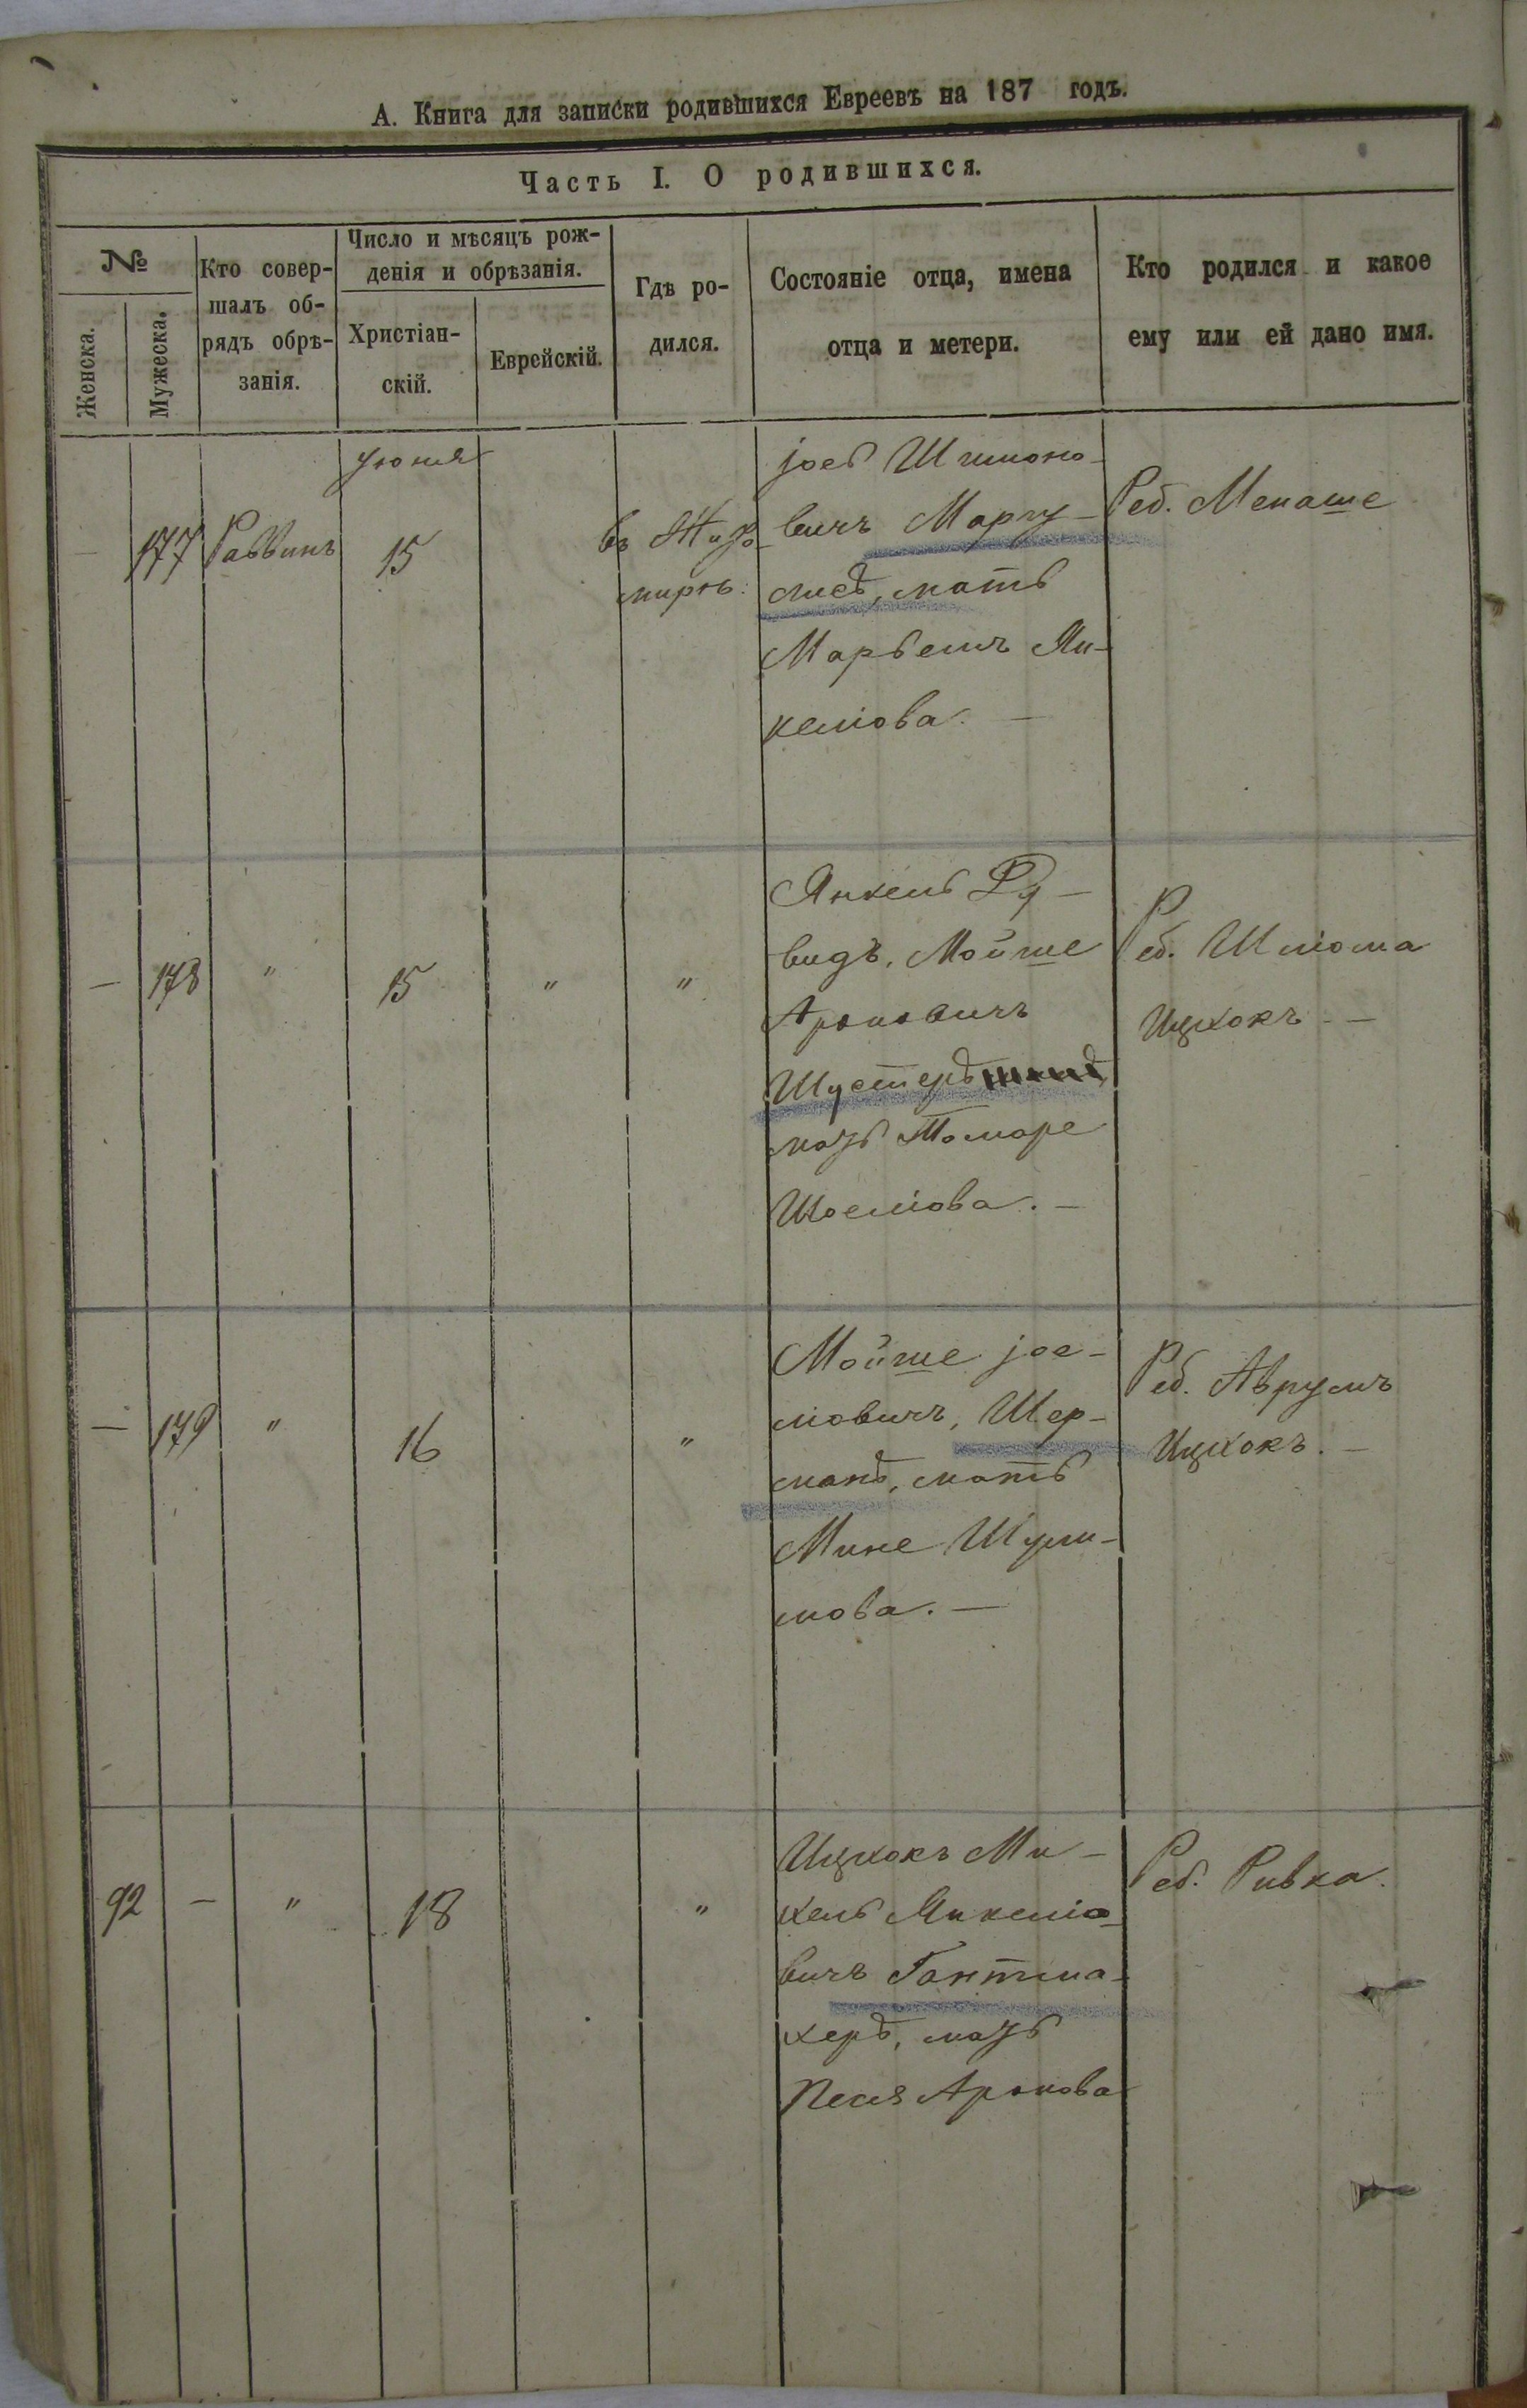 А. Книга для записки родившихся Евреевъ на 187 годъ.
Часть I. О родившихся.
№
Женска.
Мужеска.
Кто совер-
шалъ об-
рядъ обрѣ-
занія.
Число и мѣсяцъ рож-
денія и обрѣзанія.
Христіан-
скій.
Еврейскій.
Гдѣ ро-
дился.
Состояніе отца, имена
отца и метери.
Кто родился и какое
ему или ей дано имя.
—
177
Раввинъ
Іюня
15
въ Жито-
мирѣ.
Шимоно-
вичъ Маргу-
лисъ, мать
Марьемъ Ян-
келіова. —
Реб. Менаше
—
178
"
15
"
"
Янкель Ду-
видъ, Мойше
Ароновичъ
Шустеръ
мать Томаре
Реб. Шліома
Ицхокъ. —
—
179
"
16
"
Мойше јое-
ліовичъ, Шер-
манъ, мать
Мине Шули-
мова. —
Реб. Аврумъ
Ицхокъ. —
92
—
"
18
"
Ицхокъ Ми-
хель Янкеліо-
вичъ Гантма-
херъ, мать
Песя Аронова
Реб. Ривка.